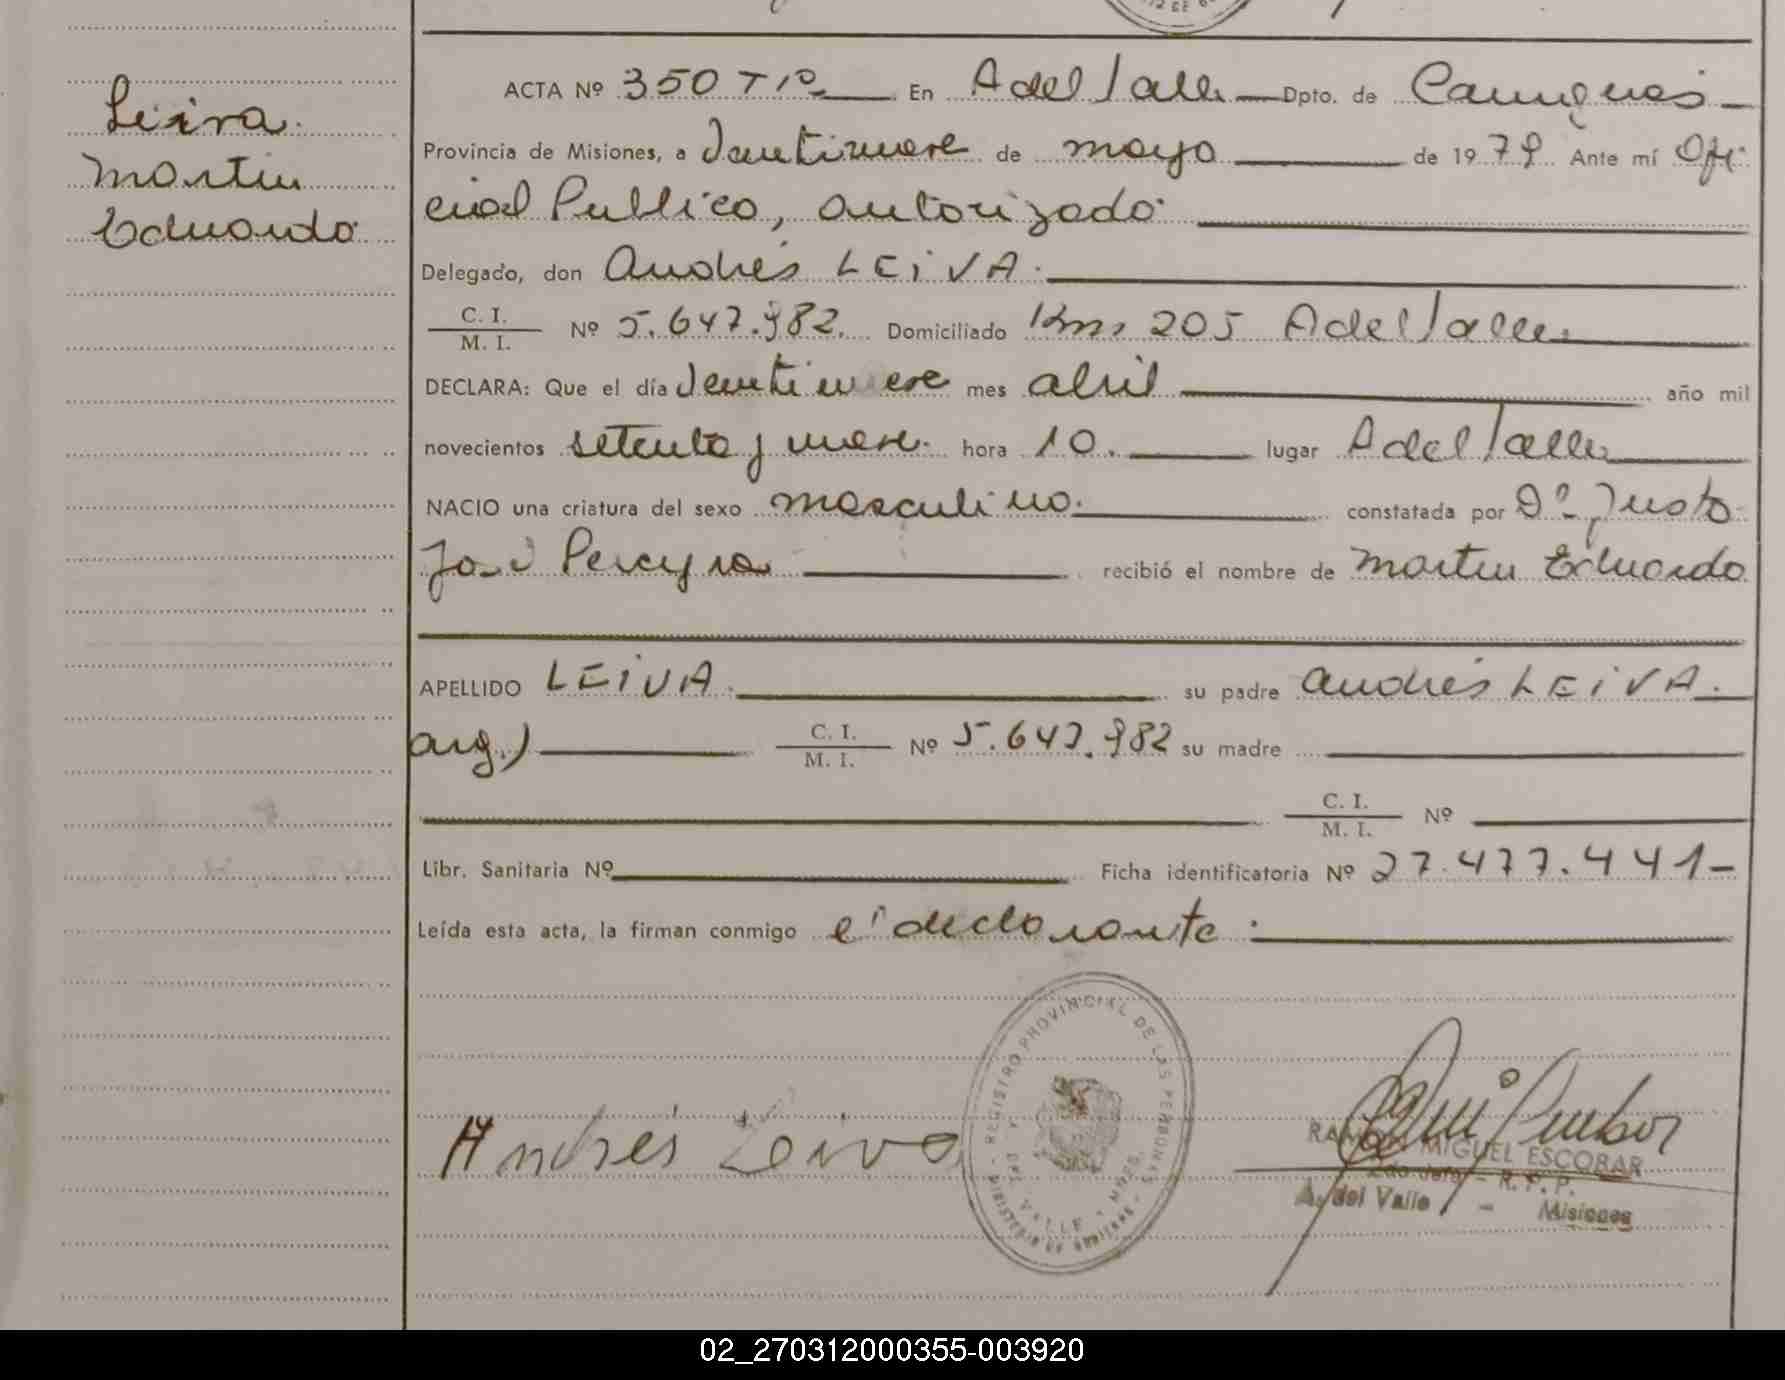 Leiva
Martin
Eduardo
ACTA Nº 350 Tº 1º En A del Valle Dpto. de Cainguas
Provincia de Misiones, a veintinueve de mayo de 19 79 Ante mí Ofi
cial Publico, autorizado
Delegado, don Andrés LEIVA.
C. I. / M. I. Nº 5.647.982. Domiciliado Km. 205 A del Valle
DECLARA: Que el día veintinueve mes abril año mil
novecientos setenta y nueve hora 10. lugar A del Valle
NACIO una criatura del sexo masculino. constatada por Dº Justo
José Pereyra recibió el nombre de Martin Eduardo
APELLIDO LEIVA. su padre Andrés LEIVA.
arg.) C. I. / M. I. Nº 5.647.982 su madre
C. I. / M. I. Nº
Libr. Sanitaria Nº Ficha identificatoria Nº 27.477.441-
Leída esta acta, la firman conmigo el declarante.
REGISTRO PROVINCIAL DE LAS PERSONAS
Andrés Leiva
RAMON MIGUEL ESCOBAR
2do Jefe - R. P. P.
A. del Valle - Misiones
02_270312000355-003920